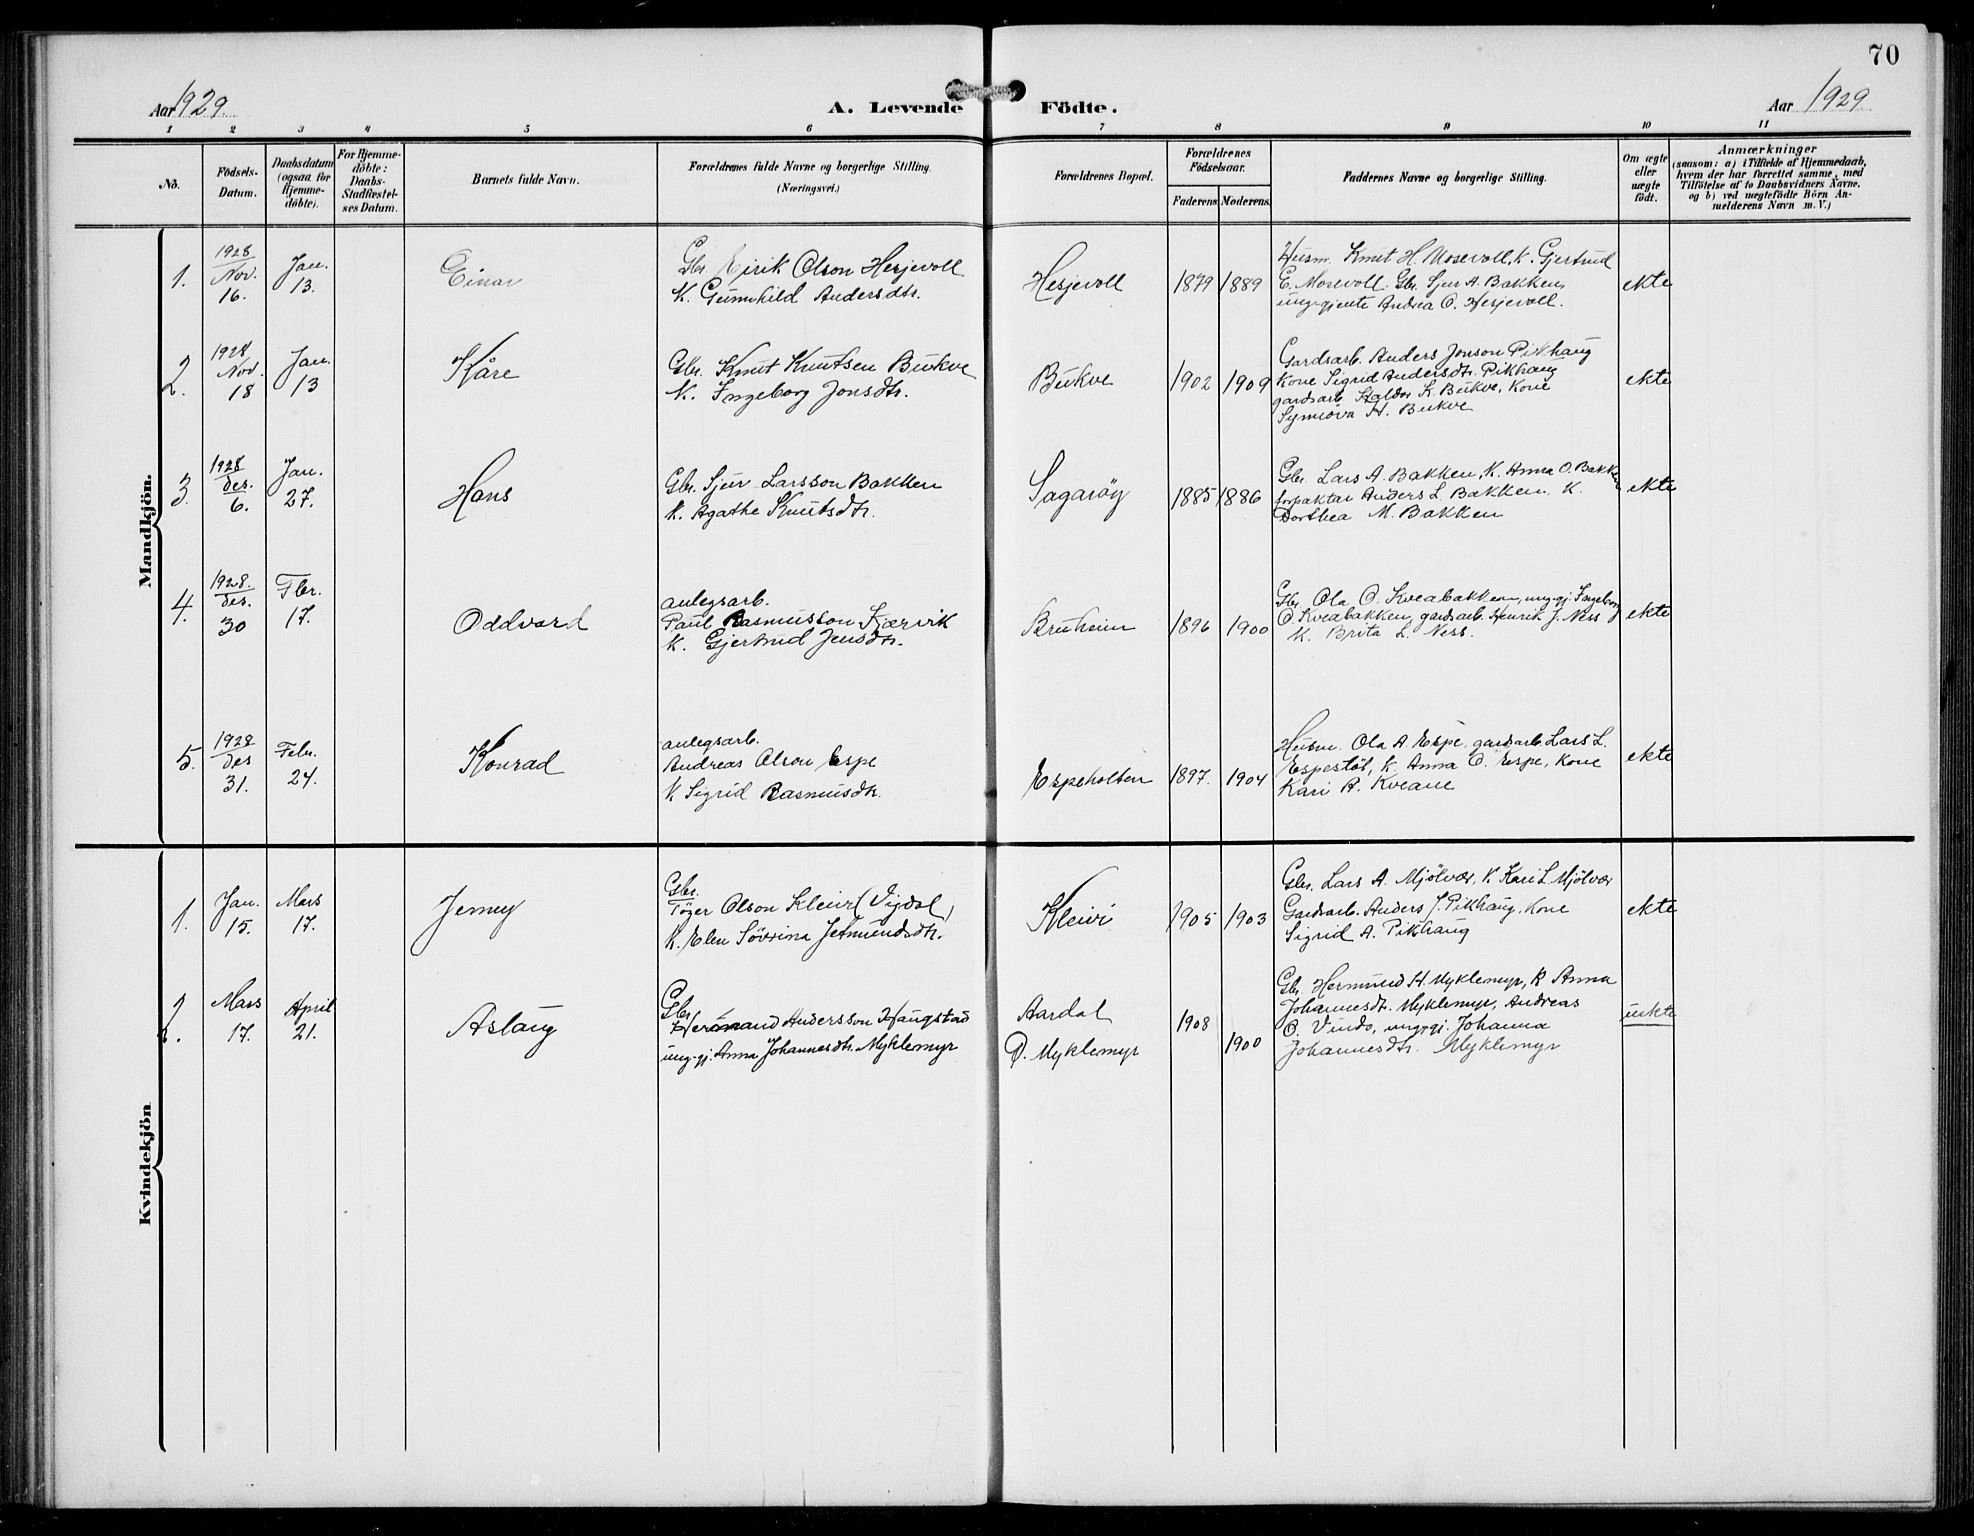 70
Aar 1929.
A. Levende Födte.
Aar 1929.
1 2 3 4 5 6 7 8 9 10 11
No.
Födsels-Datum.
Daabsdatum (ogsaa for Hjemmedöbte).
For Hjemmedöbte: Daabs-Stadfæstelses Datum.
Barnets fulde Navn.
Forældrenes fulde Navne og borgerlige Stilling.
(Næringsvei.)
Forældrenes Bopæl.
Forældrenes Födselsaar.
Faderens Moderens.
Faddernes Navne og borgerlige Stilling.
Om ægte eller uægte födt.
Anmærkninger
(saasom: a) i Tilfælde af Hjemmedaab,
hvem der har forrettet samme, med
Tilföielse af to Daabsvidners Navne,
og b) ved uægtefödte Börn An-
melderens Navn m. V.)
Mandkjön.
1.
1928
Nov.
16.
Jan.
13.
Einar
Gbr Eirik Olson Hesjevoll
K. Gunnhild Andersdtr.
Hesjevoll
1879 1889
Husm. Knut H. Mosevoll, K. Gjertrud
E. Mosevoll. Gbr. Sjur A. Bakken,
ung.gjente Andrea O. Hesjevoll.
ekte
2.
1928
Nov.
18
Jan.
13
Kåre
Gbr. Knut Knutsen Bukve
K. Ingeborg Jonsdtr.
Bukve
1902 1909
Gardsarb. Anders Jonson Pikhaug
Kone Sigrid Andersdtr. Pikhaug
gardsarb Haldor K. Bukve, Kone
Synnöva H. Bukve
ekte
3.
1928
des.
6.
Jan.
27.
Hans
Gbr. Sjur Larsson Bakken
K. Agathe Knutsdtr.
Sagaröy
1885 1886
Gbr. Lars A. Bakken, K. Anna O. Bakken
forpaktar Anders L Bakken. K.
Dorthea M. Bakken
ekte
4.
1928.
des.
30
Fbr.
17.
Oddvard
anlegsarb.
Paul Rasmusson Kjærvik
K. Gjertrud Jensdtr.
Bruheim
1896 1900
Gbr. Ola O. Kveabakken, ung.gj. Ingeborg
O. Kveabakken, gardsarb. Henrik J. Ness
K. Brita L. Ness.
ekte
5.
1928
des
31.
Febr.
24.
Konrad
anlegsarb.
Andreas Olson Espe
K Sigrid Rasmusdtr.
Espeholten
1897. 1904
Husm. Ola A. Espe, gardsarb. Lars L.
Espestöl, K. Anna O. Espe, Kone
Kari A. Kveane
ekte
Kvindekjön
1.
Jan.
15.
Mars
17.
Jenny
Gbr.
Töger Olson Kleivi (Vigdal)
K. Elen Sövrina Jetmundsdtr.
Kleivi
1905 1903
Gbr. Lars A. Mjölvær, K. Kari L. Mjölvær
Gardsarb. Anders J. Pikhaug, Kone
Sigrid A. Pikhaug
ekte
2.
Mars
17.
April
21.
Aslaug
Gbr.
Hermand Andersson Haugstad
ung.gj. Anna Johannesdtr. Myklemyr
Aardal
O. Myklemyr
1908
1900
Gbr. Hermund H. Myklemyr, K Anna
Johannesdtr. Myklemyr, Andreas
O. Vindo, ung.gj. Johanna
Johannesdtr. Myklemyr
uekte